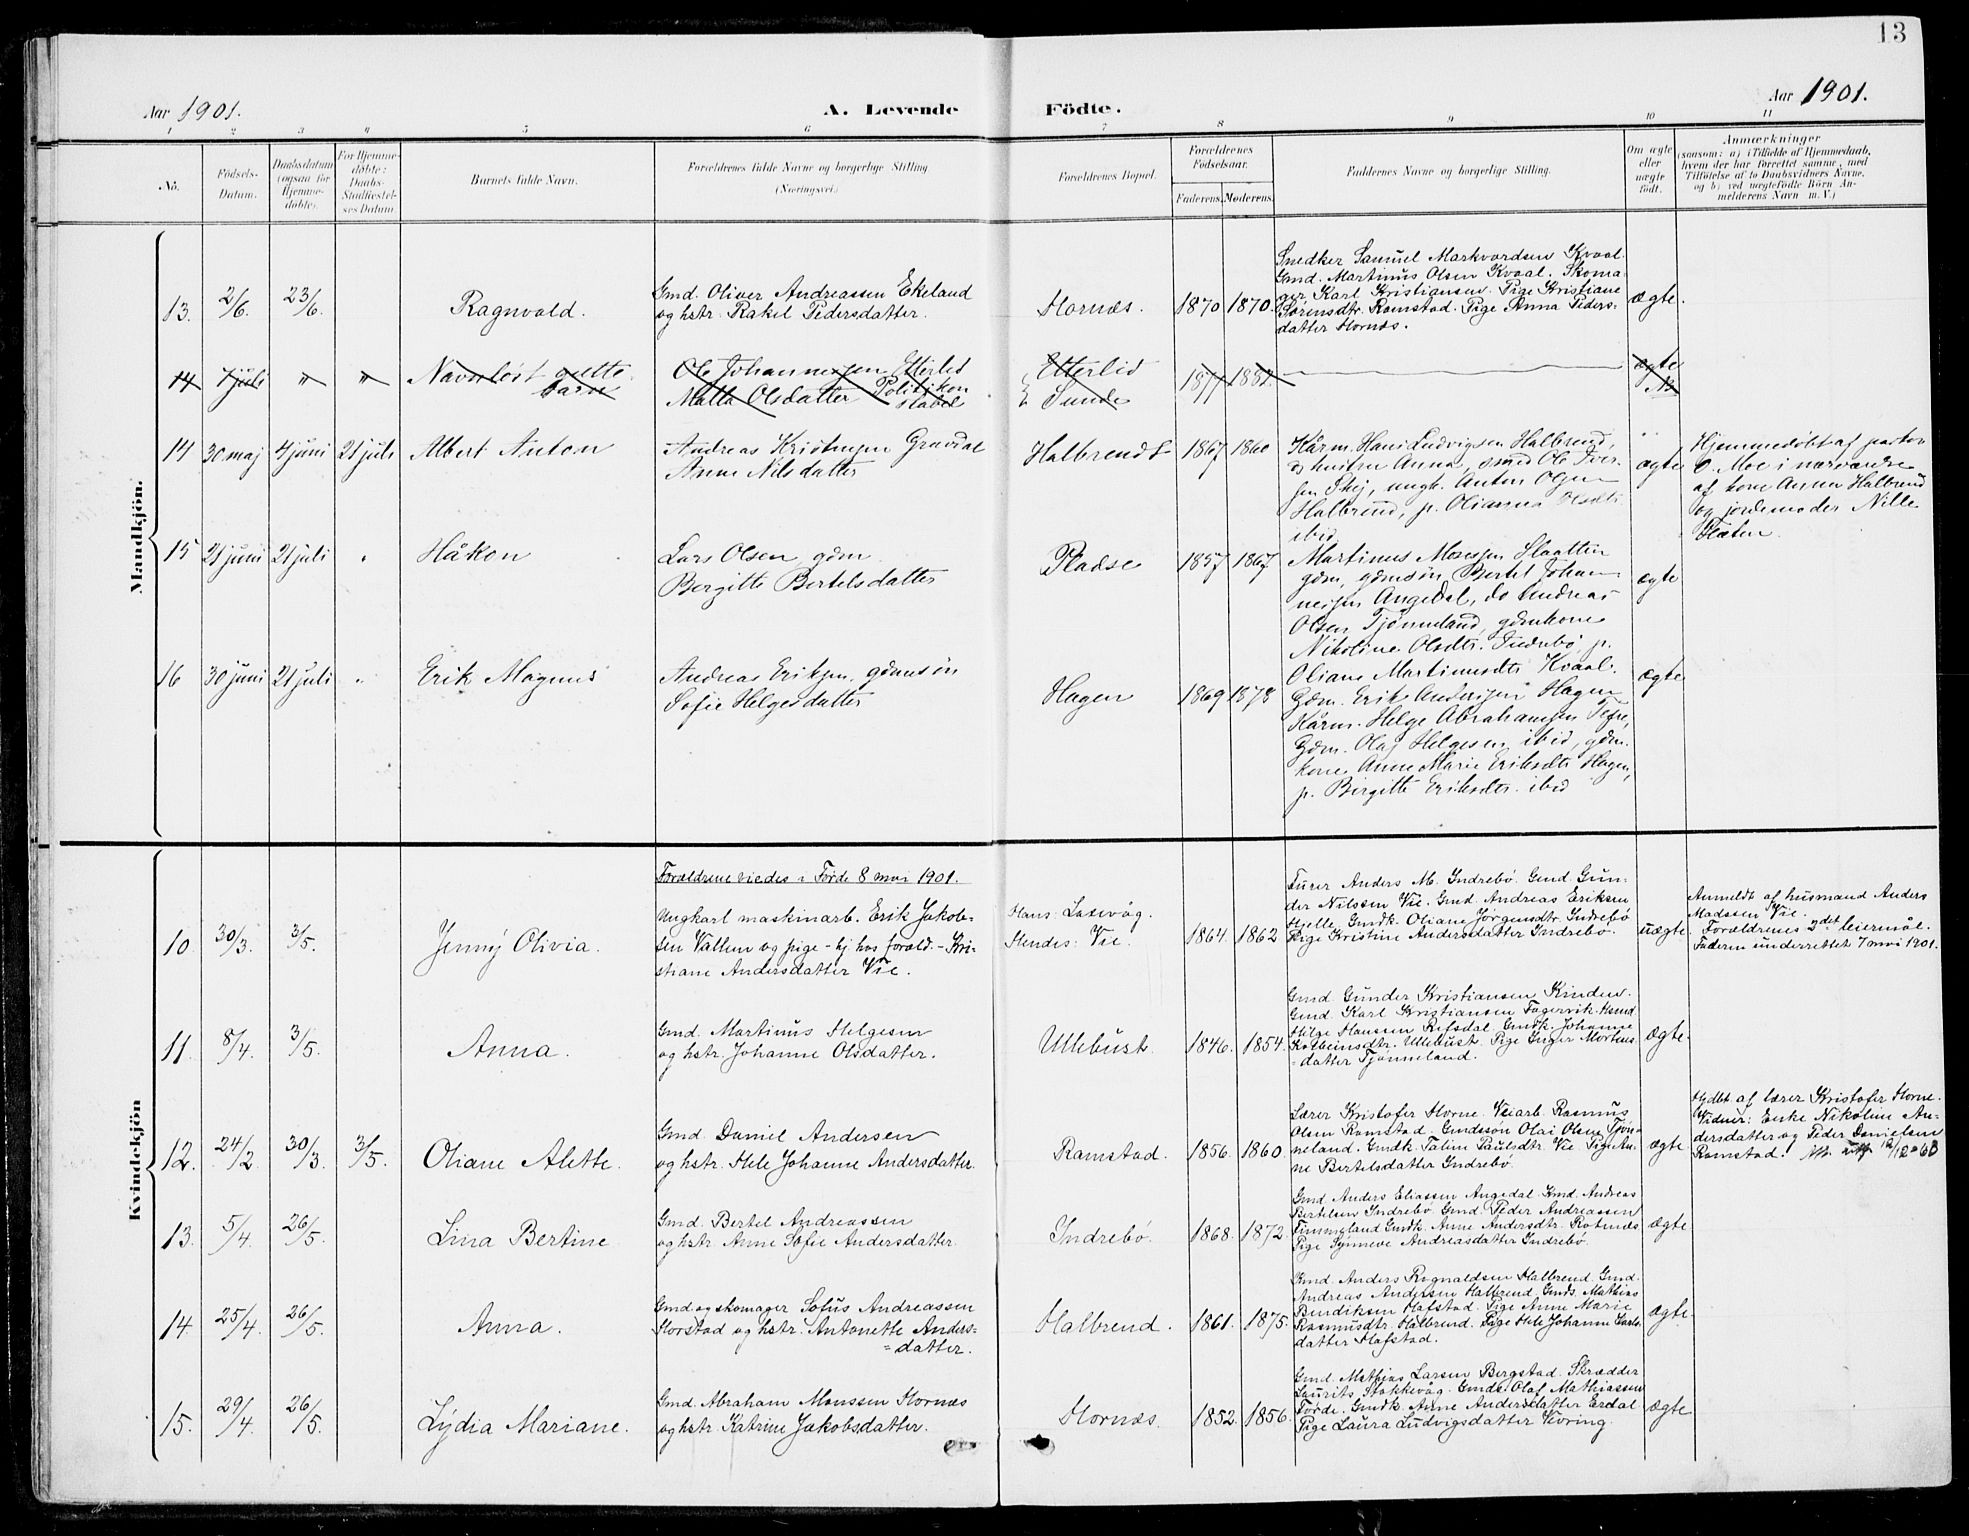 13
Aar 1901.
A. Levende Födte.
Aar 1901.
1 2 3 4 5 6 7 8 9 10 11
No.
Födsels-Datum.
Daabsdatum (ogsaa for Hjemme-döbte).
For Hjemme-döbte: Daabs-Stadfæstel-ses Datum
Barnets fulde Navn.
Forældrenes fulde Navne og borgerlige Stilling
(Næringsvei.)
Forældrenes Bopæl.
Forældrenes Födselsaar.
Faderens. Moderens.
Faddernes Navne og borgerlige Stilling.
Om ægte eller uægte födt.
Anmærkninger
(saasom: a) i Tilfælde af Hjemmedaab,
hvem der har forrettet samme, med
Tilföielse af to Daabsvidners Navne,
og b) ved uægtefödte Börn An-
melderens Navn m. V.)
Mandkjön.
13. 2/6. 23/6. Ragnvald.
Gmd. Oliver Andreassen Ekeland
og hstr. Rakel Pedersdatter.
Hornæs. 1870 1870.
Snedker Samuel Markvardsen Kvaal.
Gmd. Martinus Olsen Kvaal. Skoma-
ger Karl Kristiansen. Pige Kristiane
Sørensdtr. Ramstad. Pige Anna Peders-
datter Hornæs.
ægte.
14 7 juli " " Navnløst
barn
Ole Johannesen Etterlid
Malla Olsdatter
Etterlid
Sunde
1877 1882.
ægte
14 30 maj 4 juni 21 juli Albert Anton
Andreas Gravdal
Anne Nilsdatter
Halbrendt 1867 1860
Kårm. Hans Ludvigsen Halbrend,
hustru Anna, smed Ole Iver-
sen Skej, ungk. Anton Olsen
Halbrend, p. Olianna Olsdtr
ibid
ægte
Hjemmedøbt af pastor
O. Moe i nærværelse
af kone Anna Halbrend
og jordemoder Nille
Flaten.
15 21 juni 21 juli " Håkon
Lars Olsen gdm
Bergitte Bertelsdatter
Pladse 1857 1867
Martinus Monssen Slaatten
gdm, gdmsøn Bertel Johan-
nessen Angedal, do Andreas
Olsen Tjønneland, gdmkone
Nikoline Olsdtr. Indrebø, p.
Oliane Martinusdtr Kvaal.
ægte
16 30 juni 21 juli " Erik Magnus
Andreas Eriksen, gdmsøn
Sofie Helgesdatter
Hagen 1869 1878
Gdm. Erik Andersen Hagen
Kårm. Helge Abrahamsen Tefre,
Gdm. Olaf Helgesen ibid, gdm.
kone Anne Marie Eriksdtr Hagen,
p. Birgitte Eriksdtr. ibid
ægte
Kvindekjön
Forældrene viedes i Førde 8 mai 1901.
10 30/3. 3/5. Jenny Olivia.
Ungkarl maskinarb. Erik Jakob-
sen Vallem og pige - hj. hos foræld. - Kri-
stiane Andersdatter Vie.
Hans: Laxevåg.
Hendes: Vie.
1864. 1862
Furer Anders M. Indrebø. Gmd. Gun-
der Nilssen Vie. Gmd Andreas Eriksen
Hjelle. Gmdk. Oliane Jørgensdtr. Indrebø
Pige Kristine Andersdatter Indrebø.
uægte.
Anmeldt af husmand Anders
Madssen Vie.
Forældrenes 2det leiermål.
Faderen underrettet 7 mai 1901.
11. 8/4. 3/5. Anna.
Gmd. Martinus Helgesen
og hstr. Johanne Olsdatter.
Ullebust. 1846. 1854.
Gmd. Gunder Kristiansen Kinden.
Gmd. Karl Kristiansen Fagervik. Hsmd
Helge Hanssen Refsdal. Gmdk. Johanne
Kolbeinsdtr. Ullebust. Pige Inger Mortens-
datter Tjønneland.
ægte.
12. 24/2. 30/3. 3/5. Oliane Alette.
Gmd. Daniel Andersen
og hstr. Hele Johanne Andersdatter.
Ramstad. 1856. 1860.
Lærer Kristofer Horne. Veiarb. Rasmus
Olsen Ramstad. Gmdssøn Olai Olsen Tjøn-
neland. Gmdk. Taline Paulsdtr. Vie. Pige An-
ne Bertelsdatter Indrebø.
ægte
Hjdbt. af lærer Kristofer Horne.
Vidner: Enke Nikoline An-
dersdatter og Peder Danielsen
Ramstad.
13. 5/4. 26/5. Lina Bertine.
Gmd. Bertel Andreassen
og hstr. Anne Sofie Andersdatter.
Indrebø. 1868. 1872.
Gmd Anders Eliassen Angedal. Gmd. Andreas
Bertelsen Indrebø. Gmd. Peder Andreassen
Timmeland. Gmdk. Anne Andersdtr. Rotnæs
Pige Synneve Andreasdatter Indrebø.
ægte
14. 25/4. 26/5. Anna.
Gmd. og skomager Sofus Andreassen
Horstad og hstr. Antonette Anders-
=datter.
Halbrend. 1861. 1875.
Gmd. Anders Rognaldsen Halbrend. Gmd.
Andreas Anderssen Halbrend. Gmds. Mathias
Bendiksen Hafstad. Pige Anne Marie
Rasmusdtr. Halbrend. Pige Hele Johanne Lars-
datter Hafstad.
ægte.
15. 29/4. 26/5. Lydia Mariane.
Gmd. Abraham Monssen Hornæs
og hstr. Katrine Jakobsdatter.
Hornæs. 1852. 1856.
Gmd. Mathias Larsen Bergstad. Skrædder
Laurits Stokkevåg. Gmds. Olaf Mathiassen
Førde. Gmdk. Anne Andersdatter Erdal.
Pige Laura Ludvigsdatter Kvoring.
ægte